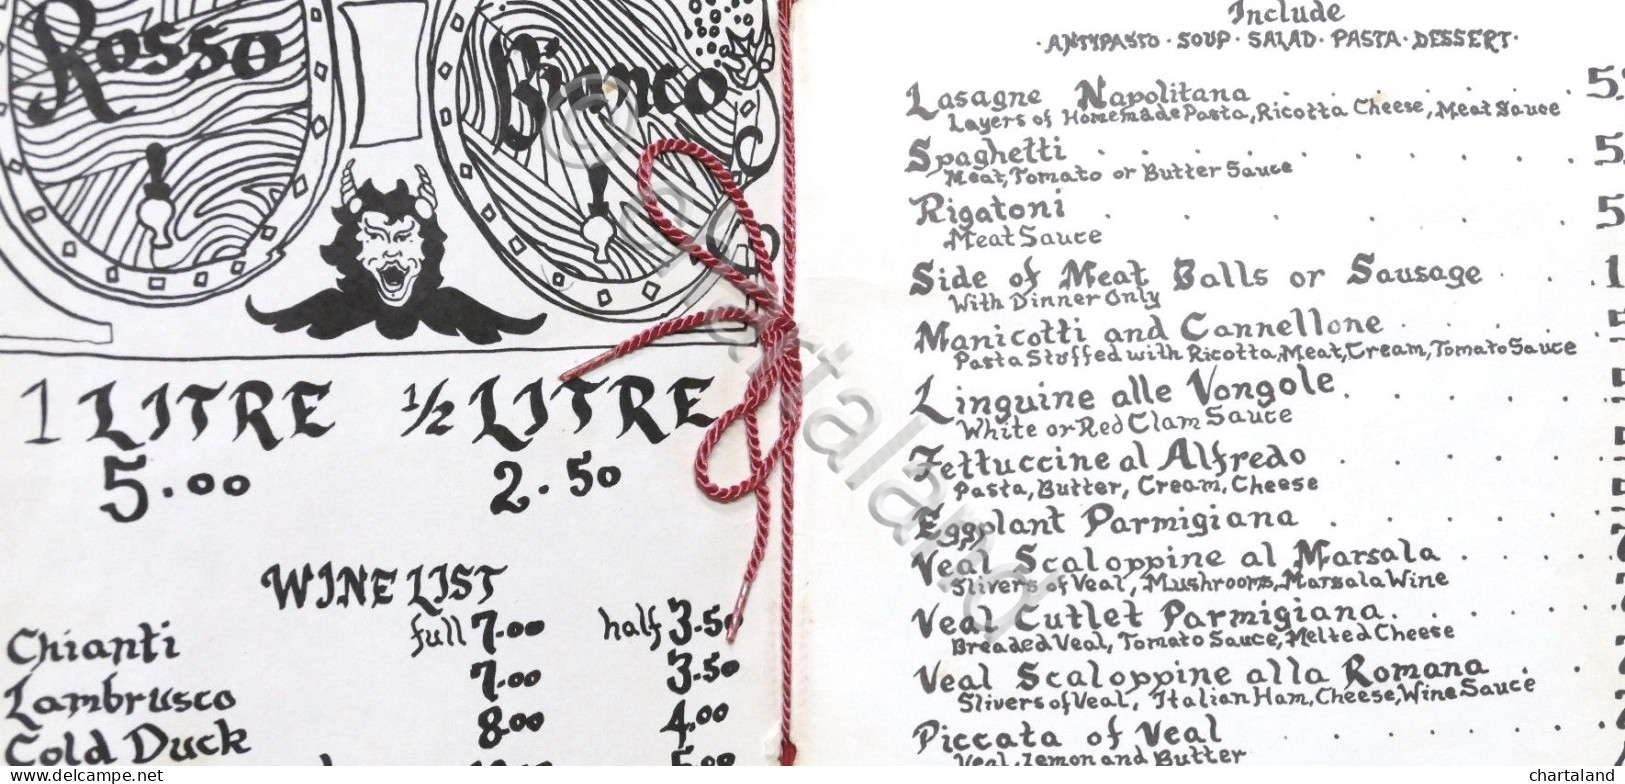 Rosso
Bianco
1 LITRE
½ LITRE
5.00
2.50
WINE LIST
Chianti full 7.00 half 3.50
Lambrusco 7.00 3.50
Cold Duck 8.00 4.00
5.00
Include
· ANTYPASTO · SOUP · SALAD · PASTA · DESSERT ·
Lasagne Napolitana . 5
Layers of Homemade Pasta, Ricotta Cheese, Meat Sauce
Spaghetti . . . . . . . . 5
Meat, Tomato or Butter Sauce
Rigatoni . . . . . . 5
Meat Sauce
Side of Meat Balls or Sausage . . . 1
With Dinner Only
Manicotti and Cannellone . . . . 5
Pasta Stuffed with Ricotta, Meat, Cream, Tomato Sauce
Linguine alle Vongole . . . . . .
White or Red Clam Sauce
Fettuccine al Alfredo . . . . . .
Pasta, Butter, Cream, Cheese
Eggplant Parmigiana . . . . . .
Veal Scaloppine al Marsala . . . . 7
Slivers of Veal, Mushrooms, Marsala Wine
Veal Cutlet Parmigiana . . . . .
Breaded Veal, Tomato Sauce, Melted Cheese
Veal Scaloppine alla Romana . . 7
Slivers of Veal, Italian Ham, Cheese, Wine Sauce
Piccata of Veal . . . . . .
Veal, Lemon and Butter
© chartaland
https://www.delcampe.net
chartaland